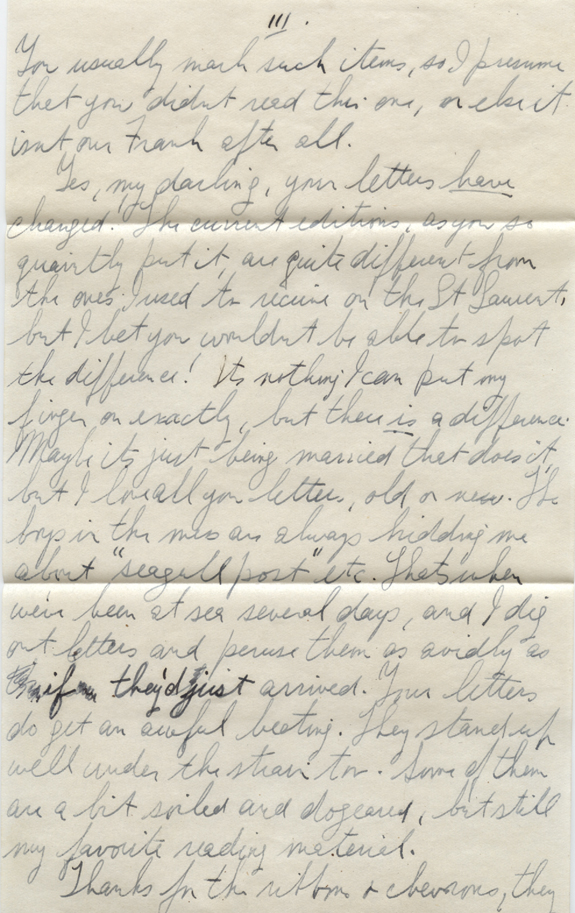 III.
You usually mark such items, so I presume
that you didnt read this one, or else it
isnt our Frank after all.
Yes, my darling, your letters have
changed. The current editions, as you so
quaintly put it, are quite different from
the ones I used to receive on the St Laurent,
but I bet you wouldnt be able to spot
the difference! Its nothing I can put my
finger on exactly, but there is a difference.
Maybe its just being married that does it,
but I love all your letters, old or new. The
boys in the mess are always kidding me
about "seagull post" etc. Thats when
we've been at sea several days, and I dig
out letters and peruse them as avidly as
if they'd just arrived. Your letters
do get an awful beating. They stand up
well under the strain too. Some of them
are a bit soiled and dogeared, but still
my favorite reading material.
Thanks for the ribbons & chevrons, they